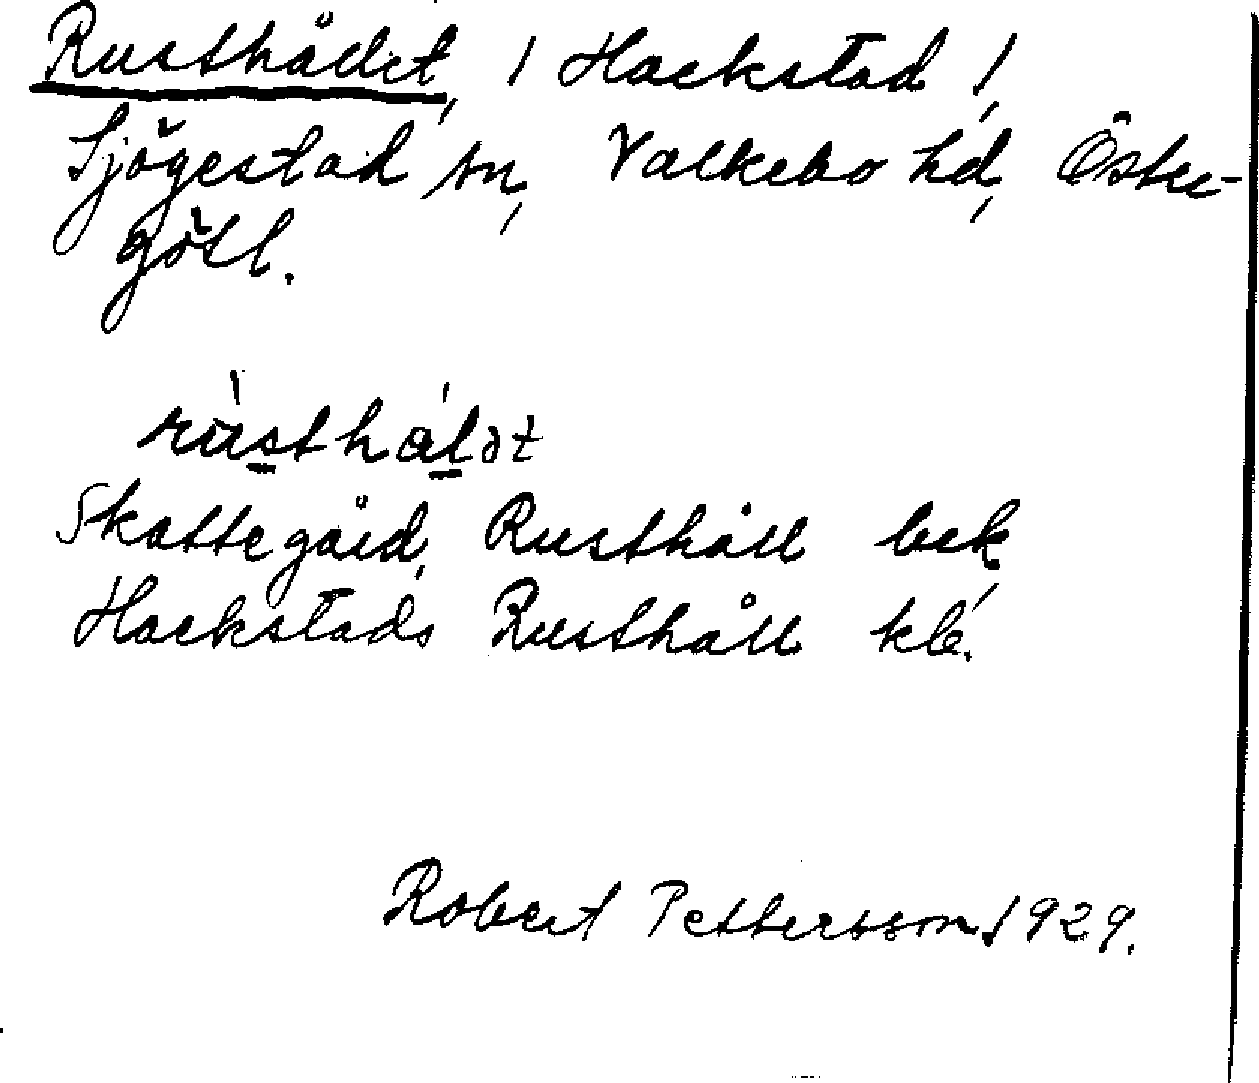 Rusthådet, / Hackstad /,
Sjögestad sn, Valkebo hd, Öster-
götl.
rùsthál̠ət
Skattegård, Rusthåll bek,
Hackstads Rusthåll kb.
Robert Pettersson 1929.